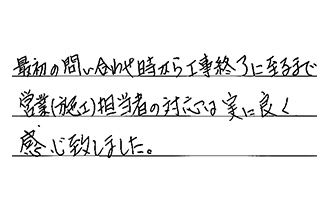 最初の問い合わせ時から工事終了に至るまで
営業(施工)担当者の対応は実に良く
感心致しました。